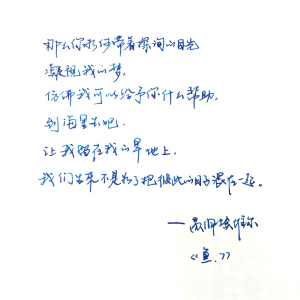 那么你为何带着探询的目光
凝视我的梦，
仿佛我可以给予你什么帮助，
到海里去吧.
让我留在我的旱地上，
我们生来不是为了把彼此的日子混在一起。
——苏佩维埃尔
《鱼.》